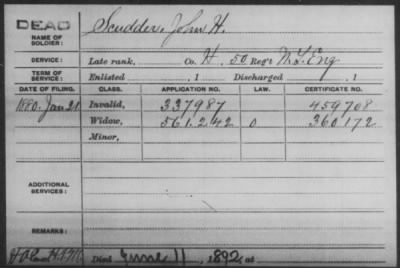 DEAD Scudder, John H.
NAME OF SOLDIER:
SERVICE: Late rank, Co. H. 50 Reg't N.Y. Eng
TERM OF SERVICE: Enlisted , 1 Discharged , 1
DATE OF FILING. CLASS. APPLICATION NO. LAW. CERTIFICATE NO.
1880. Jan 21 Invalid, 337987 459708
Widow, 561.242 0 360172
Minor,
ADDITIONAL SERVICES:
REMARKS:
Died June 11, 1892, at